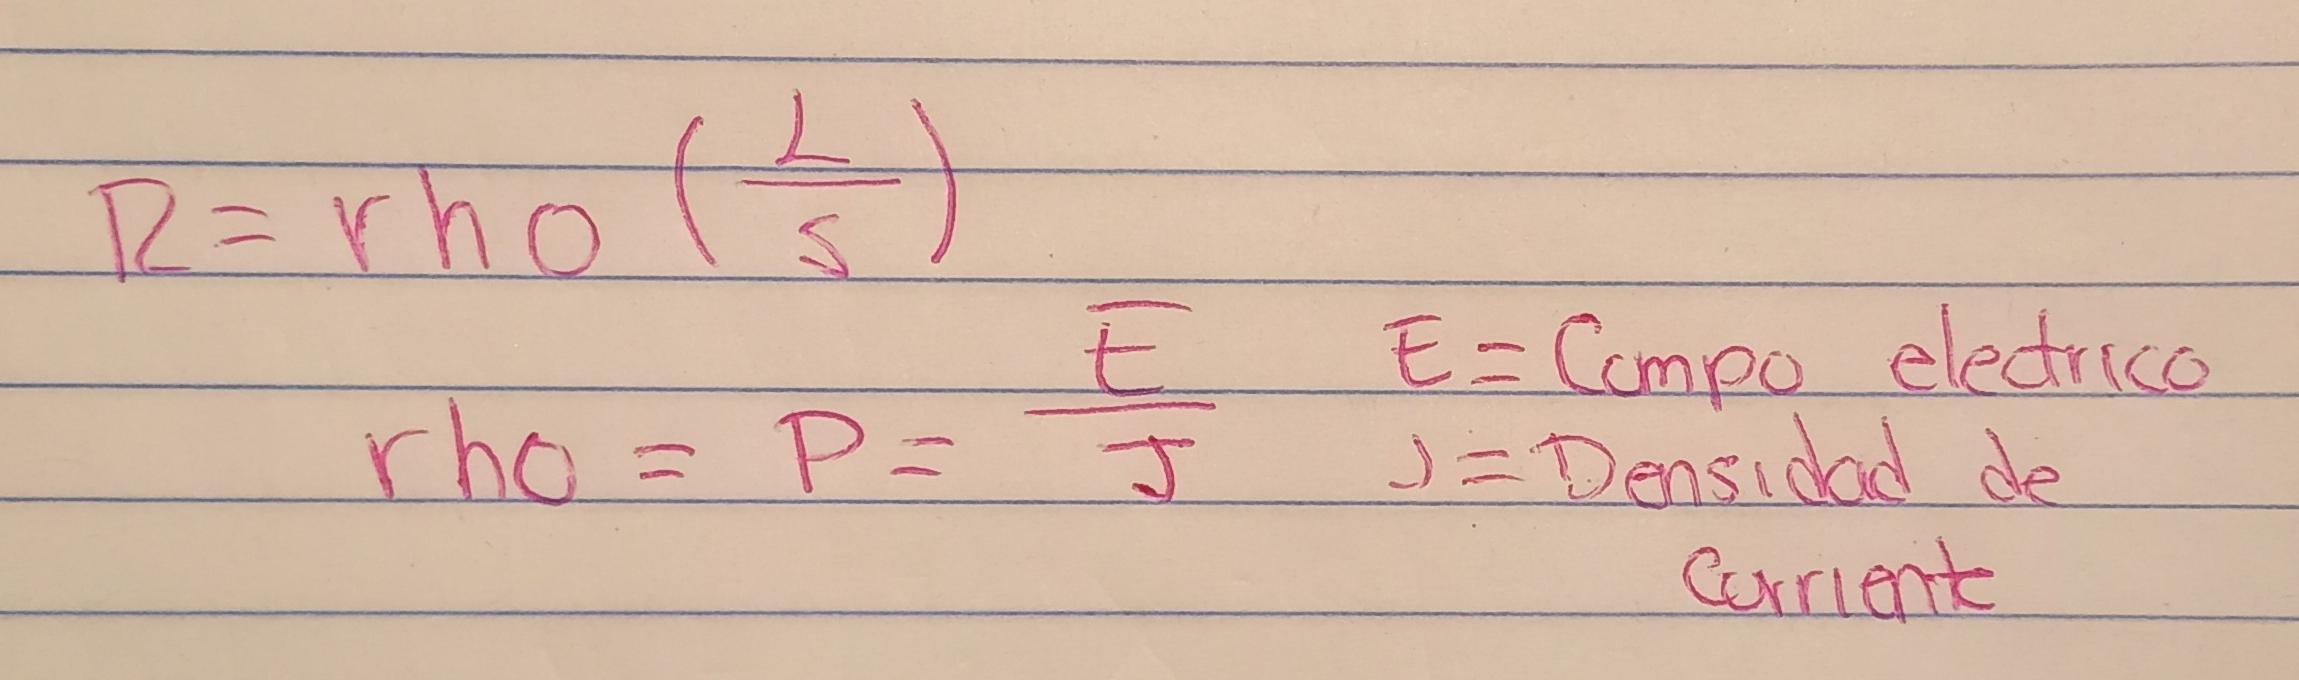 R = rho (L/S)
rho = P = E/J E = Campo electrico
J = Densidad de
Corriente